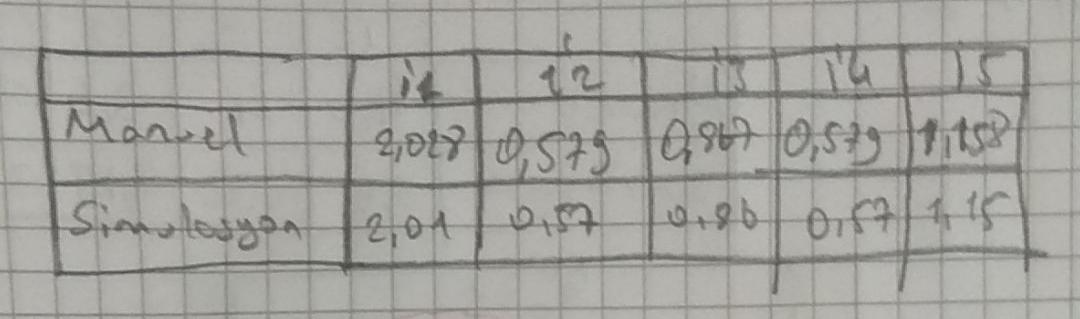 i1 i2 i3 i4 i5
Manuel 2,028 0,579 0,867 0,579 1,158
Simulasyon 2,01 0,57 0,86 0,57 1,15